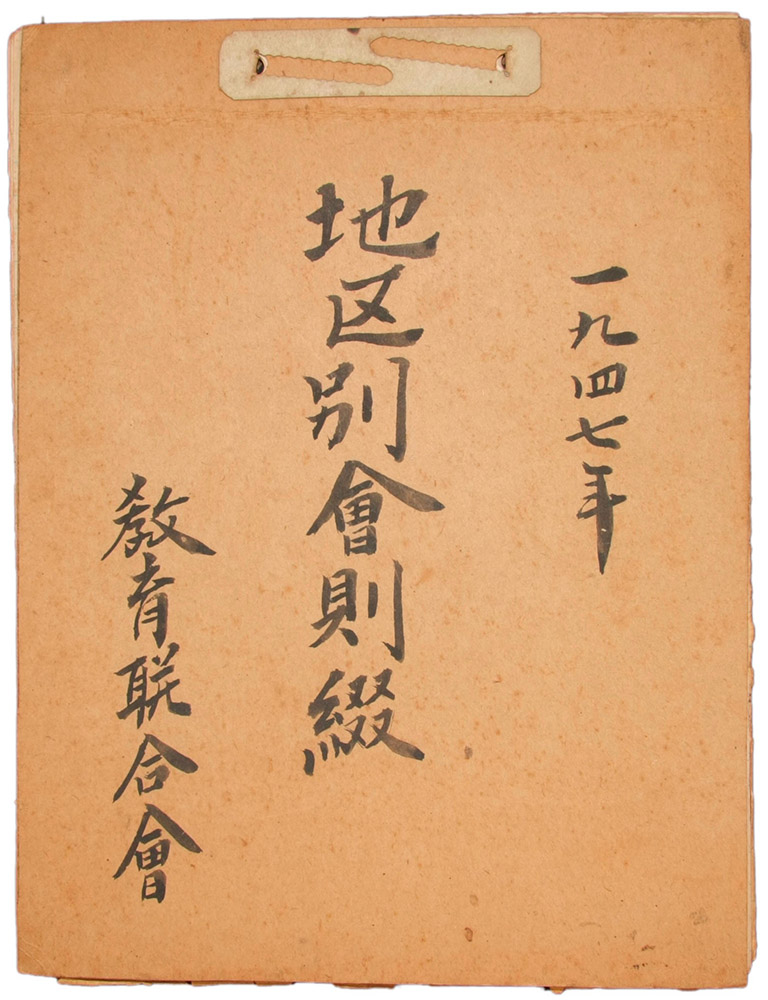 一九四七年
地区別會則綴
教育聯合會